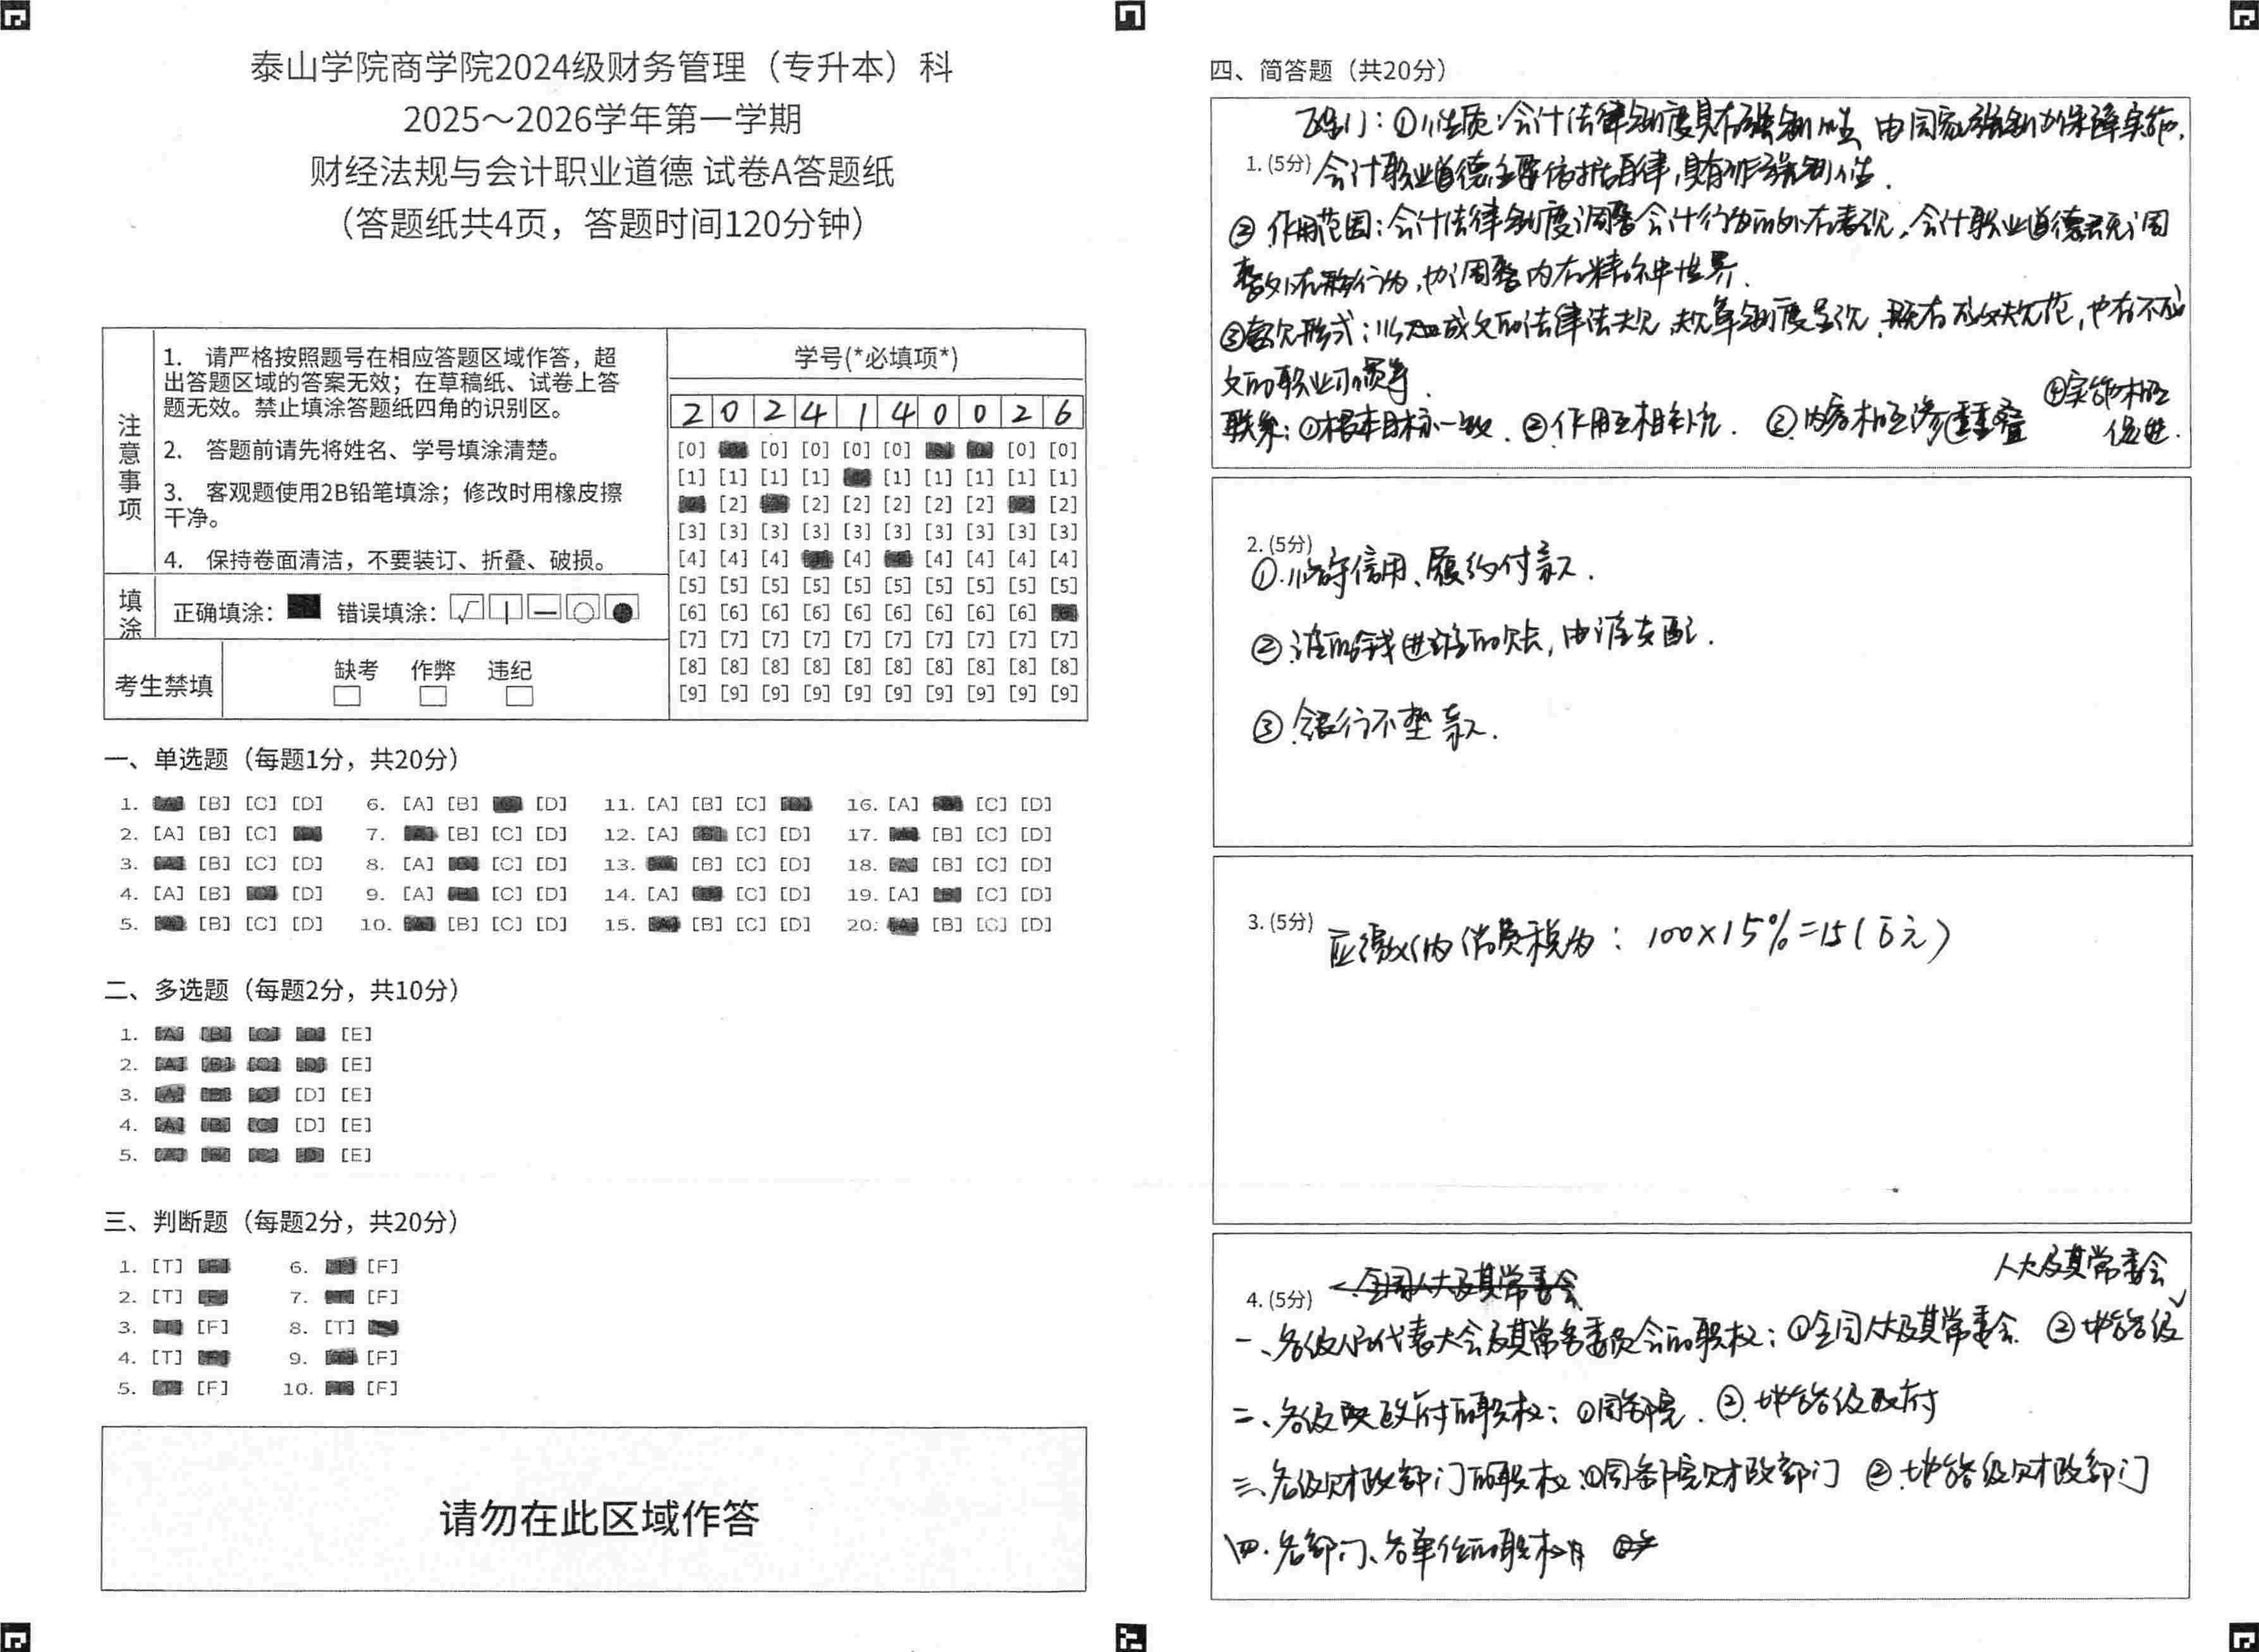 泰山学院商学院2024级财务管理（专升本）科
2025～2026学年第一学期
财经法规与会计职业道德 试卷A答题纸
（答题纸共4页，答题时间120分钟）
注意事项
1. 请严格按照题号在相应答题区域作答，超
出答题区域的答案无效；在草稿纸、试卷上答
题无效。禁止填涂答题纸四角的识别区。
2. 答题前请先将姓名、学号填涂清楚。
3. 客观题使用2B铅笔填涂；修改时用橡皮擦
干净。
4. 保持卷面清洁，不要装订、折叠、破损。
填涂 正确填涂： 错误填涂：
考生禁填 缺考 作弊 违纪
学号(*必填项*)
2 0 2 4 1 4 0 0 2 6
[0] [0] [0] [0] [0] [0] [0]
[1] [1] [1] [1] [1] [1] [1] [1] [1]
[2] [2] [2] [2] [2] [2] [2]
[3] [3] [3] [3] [3] [3] [3] [3] [3] [3]
[4] [4] [4] [4] [4] [4] [4] [4]
[5] [5] [5] [5] [5] [5] [5] [5] [5] [5]
[6] [6] [6] [6] [6] [6] [6] [6] [6]
[7] [7] [7] [7] [7] [7] [7] [7] [7] [7]
[8] [8] [8] [8] [8] [8] [8] [8] [8] [8]
[9] [9] [9] [9] [9] [9] [9] [9] [9] [9]
一、单选题（每题1分，共20分）
1. [A] [B] [C] [D] 6. [A] [B] [C] [D] 11. [A] [B] [C] [D] 16. [A] [B] [C] [D]
2. [A] [B] [C] [D] 7. [A] [B] [C] [D] 12. [A] [B] [C] [D] 17. [A] [B] [C] [D]
3. [A] [B] [C] [D] 8. [A] [B] [C] [D] 13. [A] [B] [C] [D] 18. [A] [B] [C] [D]
4. [A] [B] [C] [D] 9. [A] [B] [C] [D] 14. [A] [B] [C] [D] 19. [A] [B] [C] [D]
5. [A] [B] [C] [D] 10. [A] [B] [C] [D] 15. [A] [B] [C] [D] 20. [A] [B] [C] [D]
二、多选题（每题2分，共10分）
1. [A] [B] [C] [D] [E]
2. [A] [B] [C] [D] [E]
3. [A] [B] [C] [D] [E]
4. [A] [B] [C] [D] [E]
5. [A] [B] [C] [D] [E]
三、判断题（每题2分，共20分）
1. [T] [F] 6. [T] [F]
2. [T] [F] 7. [T] [F]
3. [T] [F] 8. [T] [F]
4. [T] [F] 9. [T] [F]
5. [T] [F] 10. [T] [F]
请勿在此区域作答
四、简答题（共20分）
区别：①性质：会计法律制度具有强制性，由国家强制力保障实施，
1. (5分) 会计职业道德主要依据自律，具有非强制性.
② 作用范围：会计法律制度调整会计行为的外在表现，会计职业道德既调
整外在行为，也调整内在精神世界.
③表现形式：以成文的法律法规，规章制度呈现，既有成文规范，也有不成
文的职业习惯等.
联系：①根本目标一致. ②作用互相补充. ③内容相互渗透重叠 ④实施相互
促进.
2. (5分)
①.恪守信用、履约付款.
②.谁的钱进谁的账，由谁支配.
③.银行不垫款.
3. (5分) 应缴纳消费税为：100×15%=15(万元)
4. (5分) 全国人大及其常委会 人大及其常委会
一、各级人民代表大会及其常务委员会的职权：①全国人大及其常委会 ②地方各级
二、各级政府的职权：①国务院. ②.地方各级政府
三、各级财政部门的职权：①国务院财政部门 ②.地方各级财政部门
四.各部门、各单位的职权